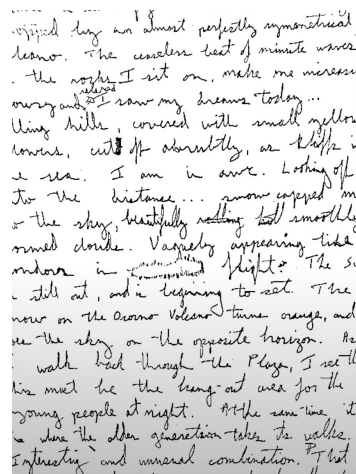 topped by an almost perfectly symmetrical
lcano. The ceaseless beat of minute waves
the rocks I sit on, make me increas
owsy and relaxed I saw my dreams today...
lling hills, covered with small yellow
lowers, cut off aburubtly, as bluffs
e sea. I am in awe. Looking off
to the distance... snow capped m
the sky, beautifully smoothly
ormed clouds. Vaguely appearing like
ondors in flight. The su
still out, and is beginning to set. The
now on the Osorno Volcano turns orange, and
the sky on the opposite horizon. As
walk back through the Plaza, I see th
his must be the hang-out area for the
young people at night. At the same time, it
is where the older generation takes its walks.
Interesting and unusual combination. That